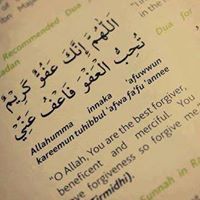 Recommended Dua for
اللَّهُمَّ إِنَّكَ عَفُوٌّ كَرِيمٌ
تُحِبُّ الْعَفْوَ فَاعْفُ عَنِّي
Allahumma innaka 'afuwwun
kareemun tuhibbul 'afwa fa'fu 'annee
"O Allah, You are the best forgiver,
beneficent and merciful. You
love forgiveness so forgive me."
Tirmidhi).
Sunnah in